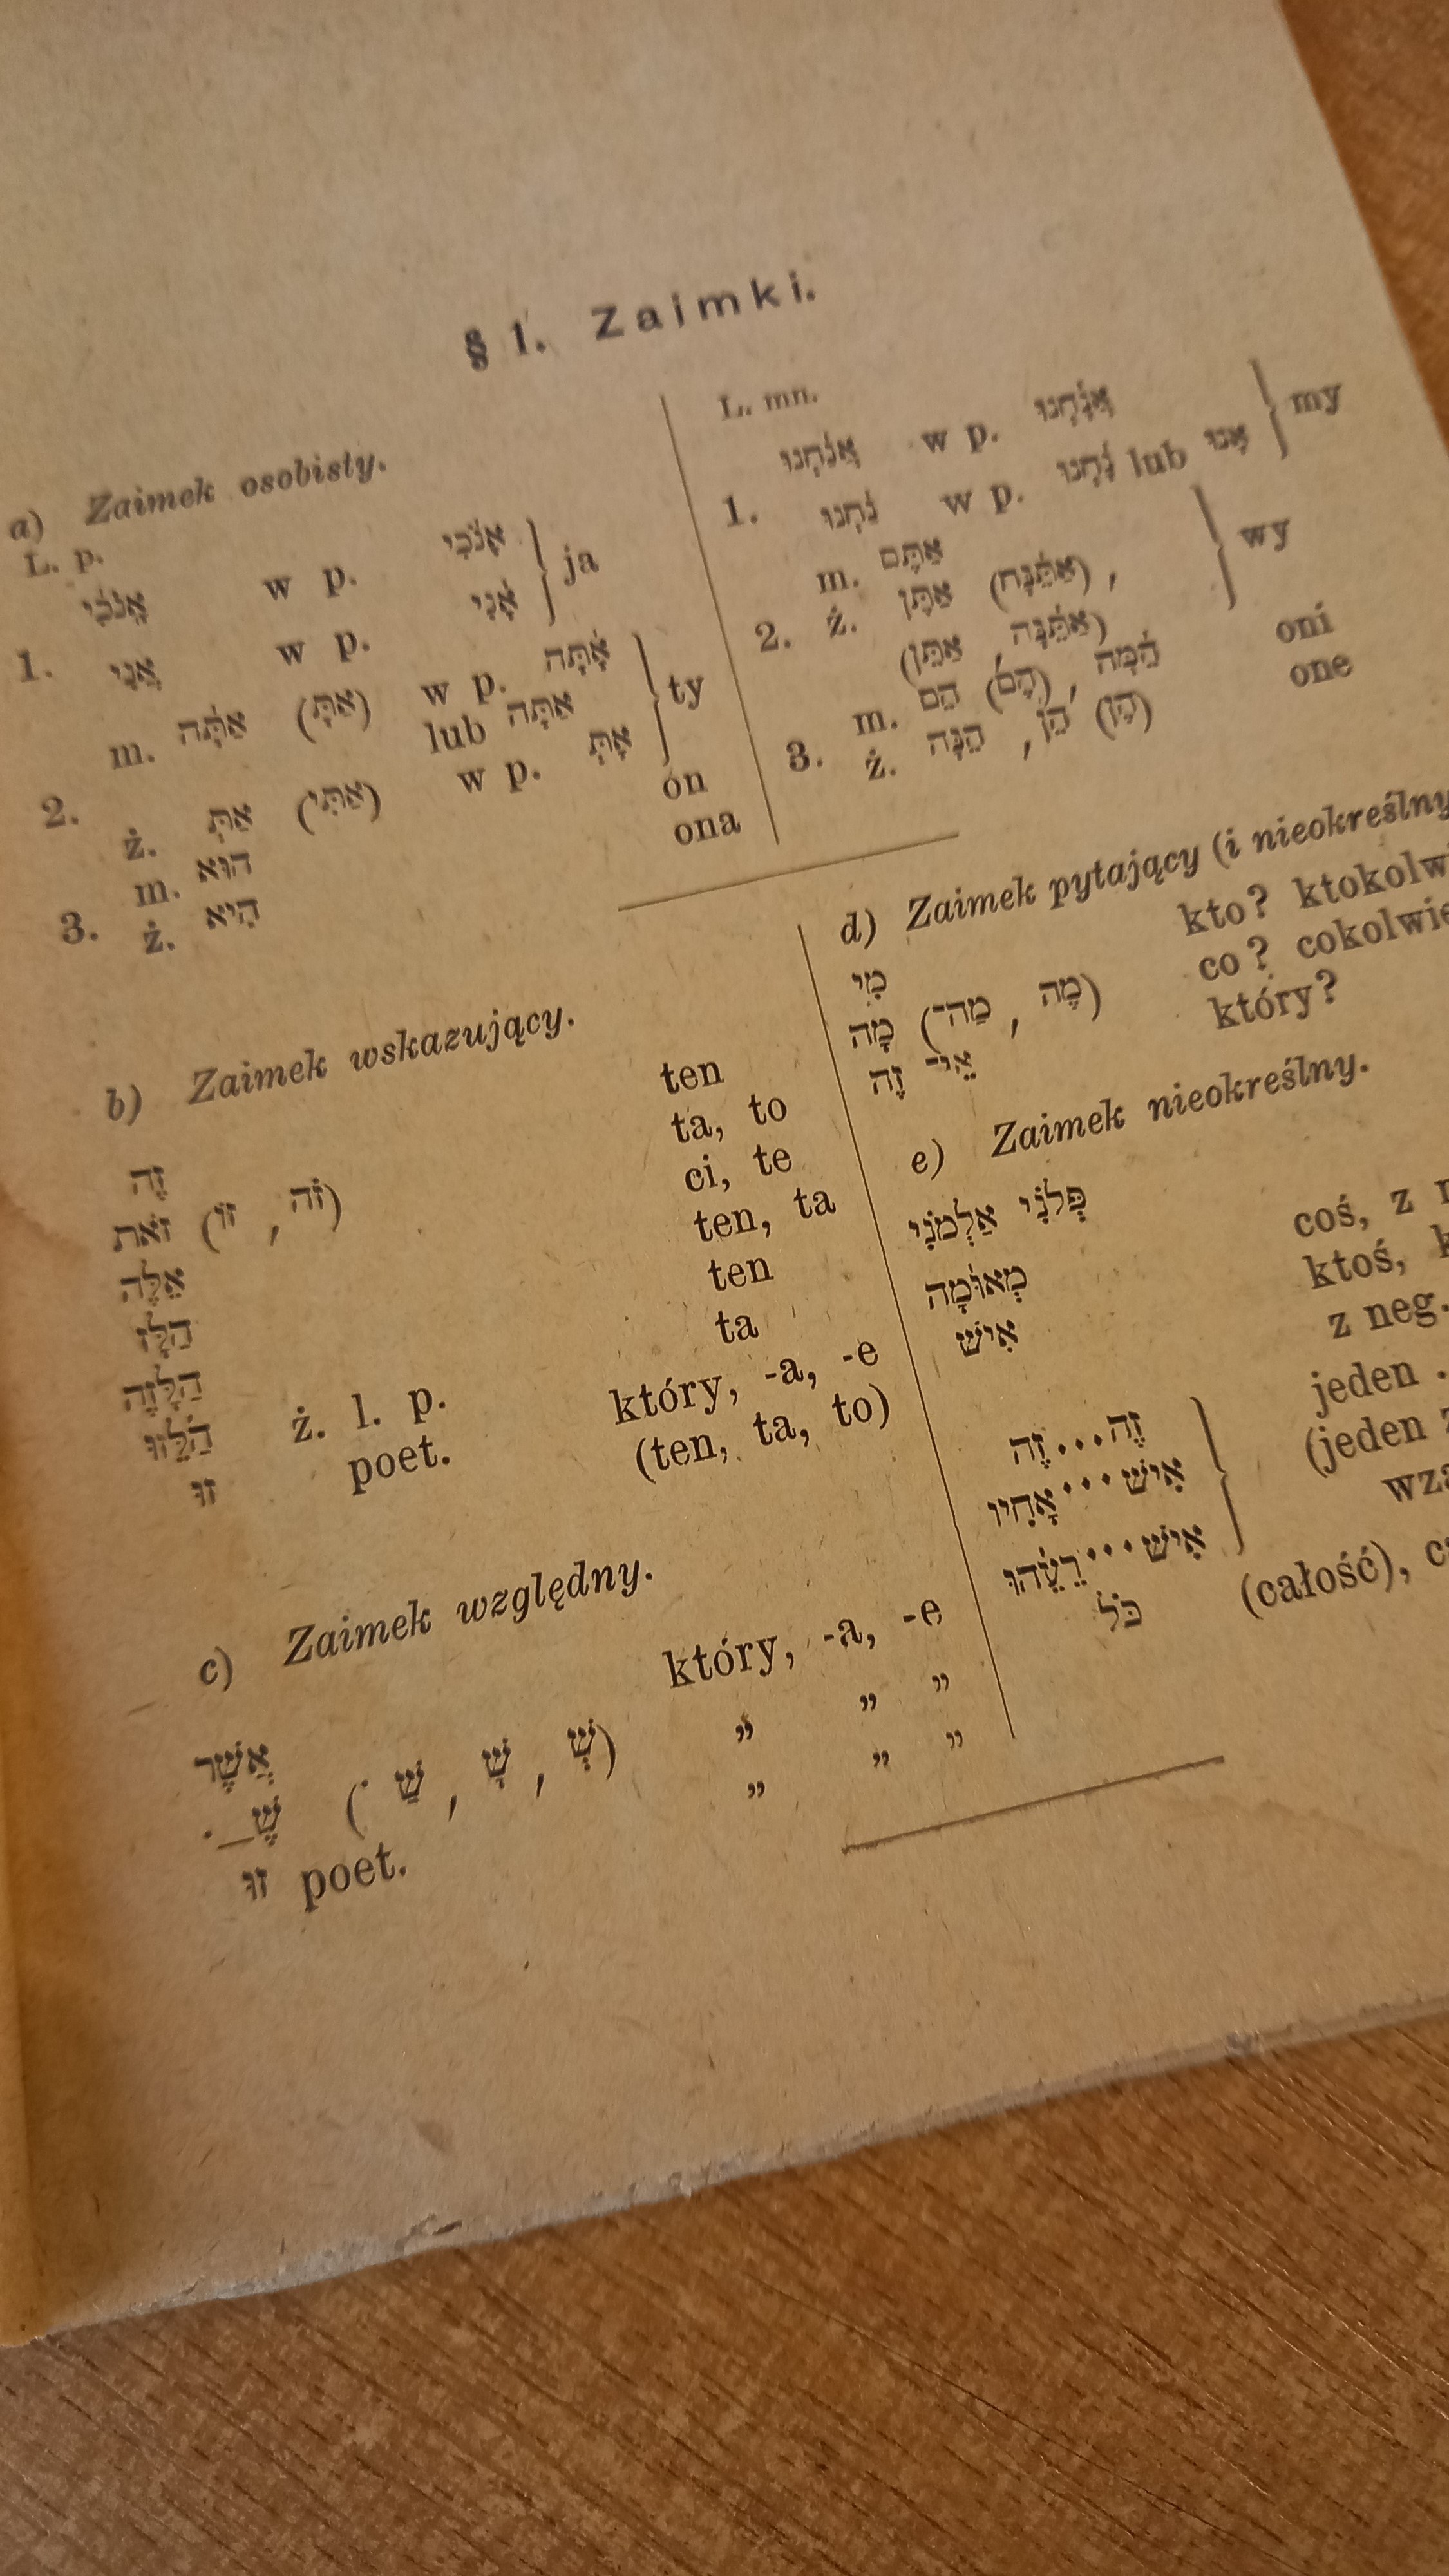 § 1. Zaimki.
a) Zaimek osobisty.
L. p.
1. אָנֹכִי w p. אָנֹכִי } ja
אֲנִי w p. אָנִי
2. m. אַתָּה (אַתָּ) w p. אָתָּה } ty
lub אַתָּה
ż. אַתְּ (אַתִּי) w p. אָתְּ
3. m. הוּא on
ż. הִיא ona
L. mn.
1. אֲנַחְנוּ w p. אֲנָחְנוּ } my
נַחְנוּ w p. נָחְנוּ lub אָנוּ
2. m. אַתֶּם } wy
ż. אַתֶּן (אַתֵּנָה),
(אַתֵּנָּה, אַתֵּן)
3. m. הֵם (הָם), הֵמָּה oni
ż. הֵנָּה, הֵן (הָן) one
b) Zaimek wskazujący.
זֶה ten
זֹאת (זוֹ, זֹה) ta, to
אֵלֶּה ci, te
הַלָּז ten, ta
הַלָּזֶה ten
הַלֵּזוּ ż. l. p. ta
זוּ poet. który, -a, -e
(ten, ta, to)
c) Zaimek względny.
אֲשֶׁר który, -a, -e
שֶׁ_ּ (שַׁ ּ, שָׁ, שְׁ) „ „ „
זוּ poet. „ „ „
d) Zaimek pytający (i nieokreślny
מִי kto?
מָה (מַה־, מֶה) co?
אֵי־ זֶה który?
e) Zaimek nieokreślny.
פְּלֹנִי אַלְמֹנִי
מְאוּמָה coś, z
אִישׁ ktoś,
z neg.
זֶה...זֶה } jeden
אִישׁ...אָחִיו (jeden
אִישׁ...רֵעֵהוּ
כֹּל (całość),